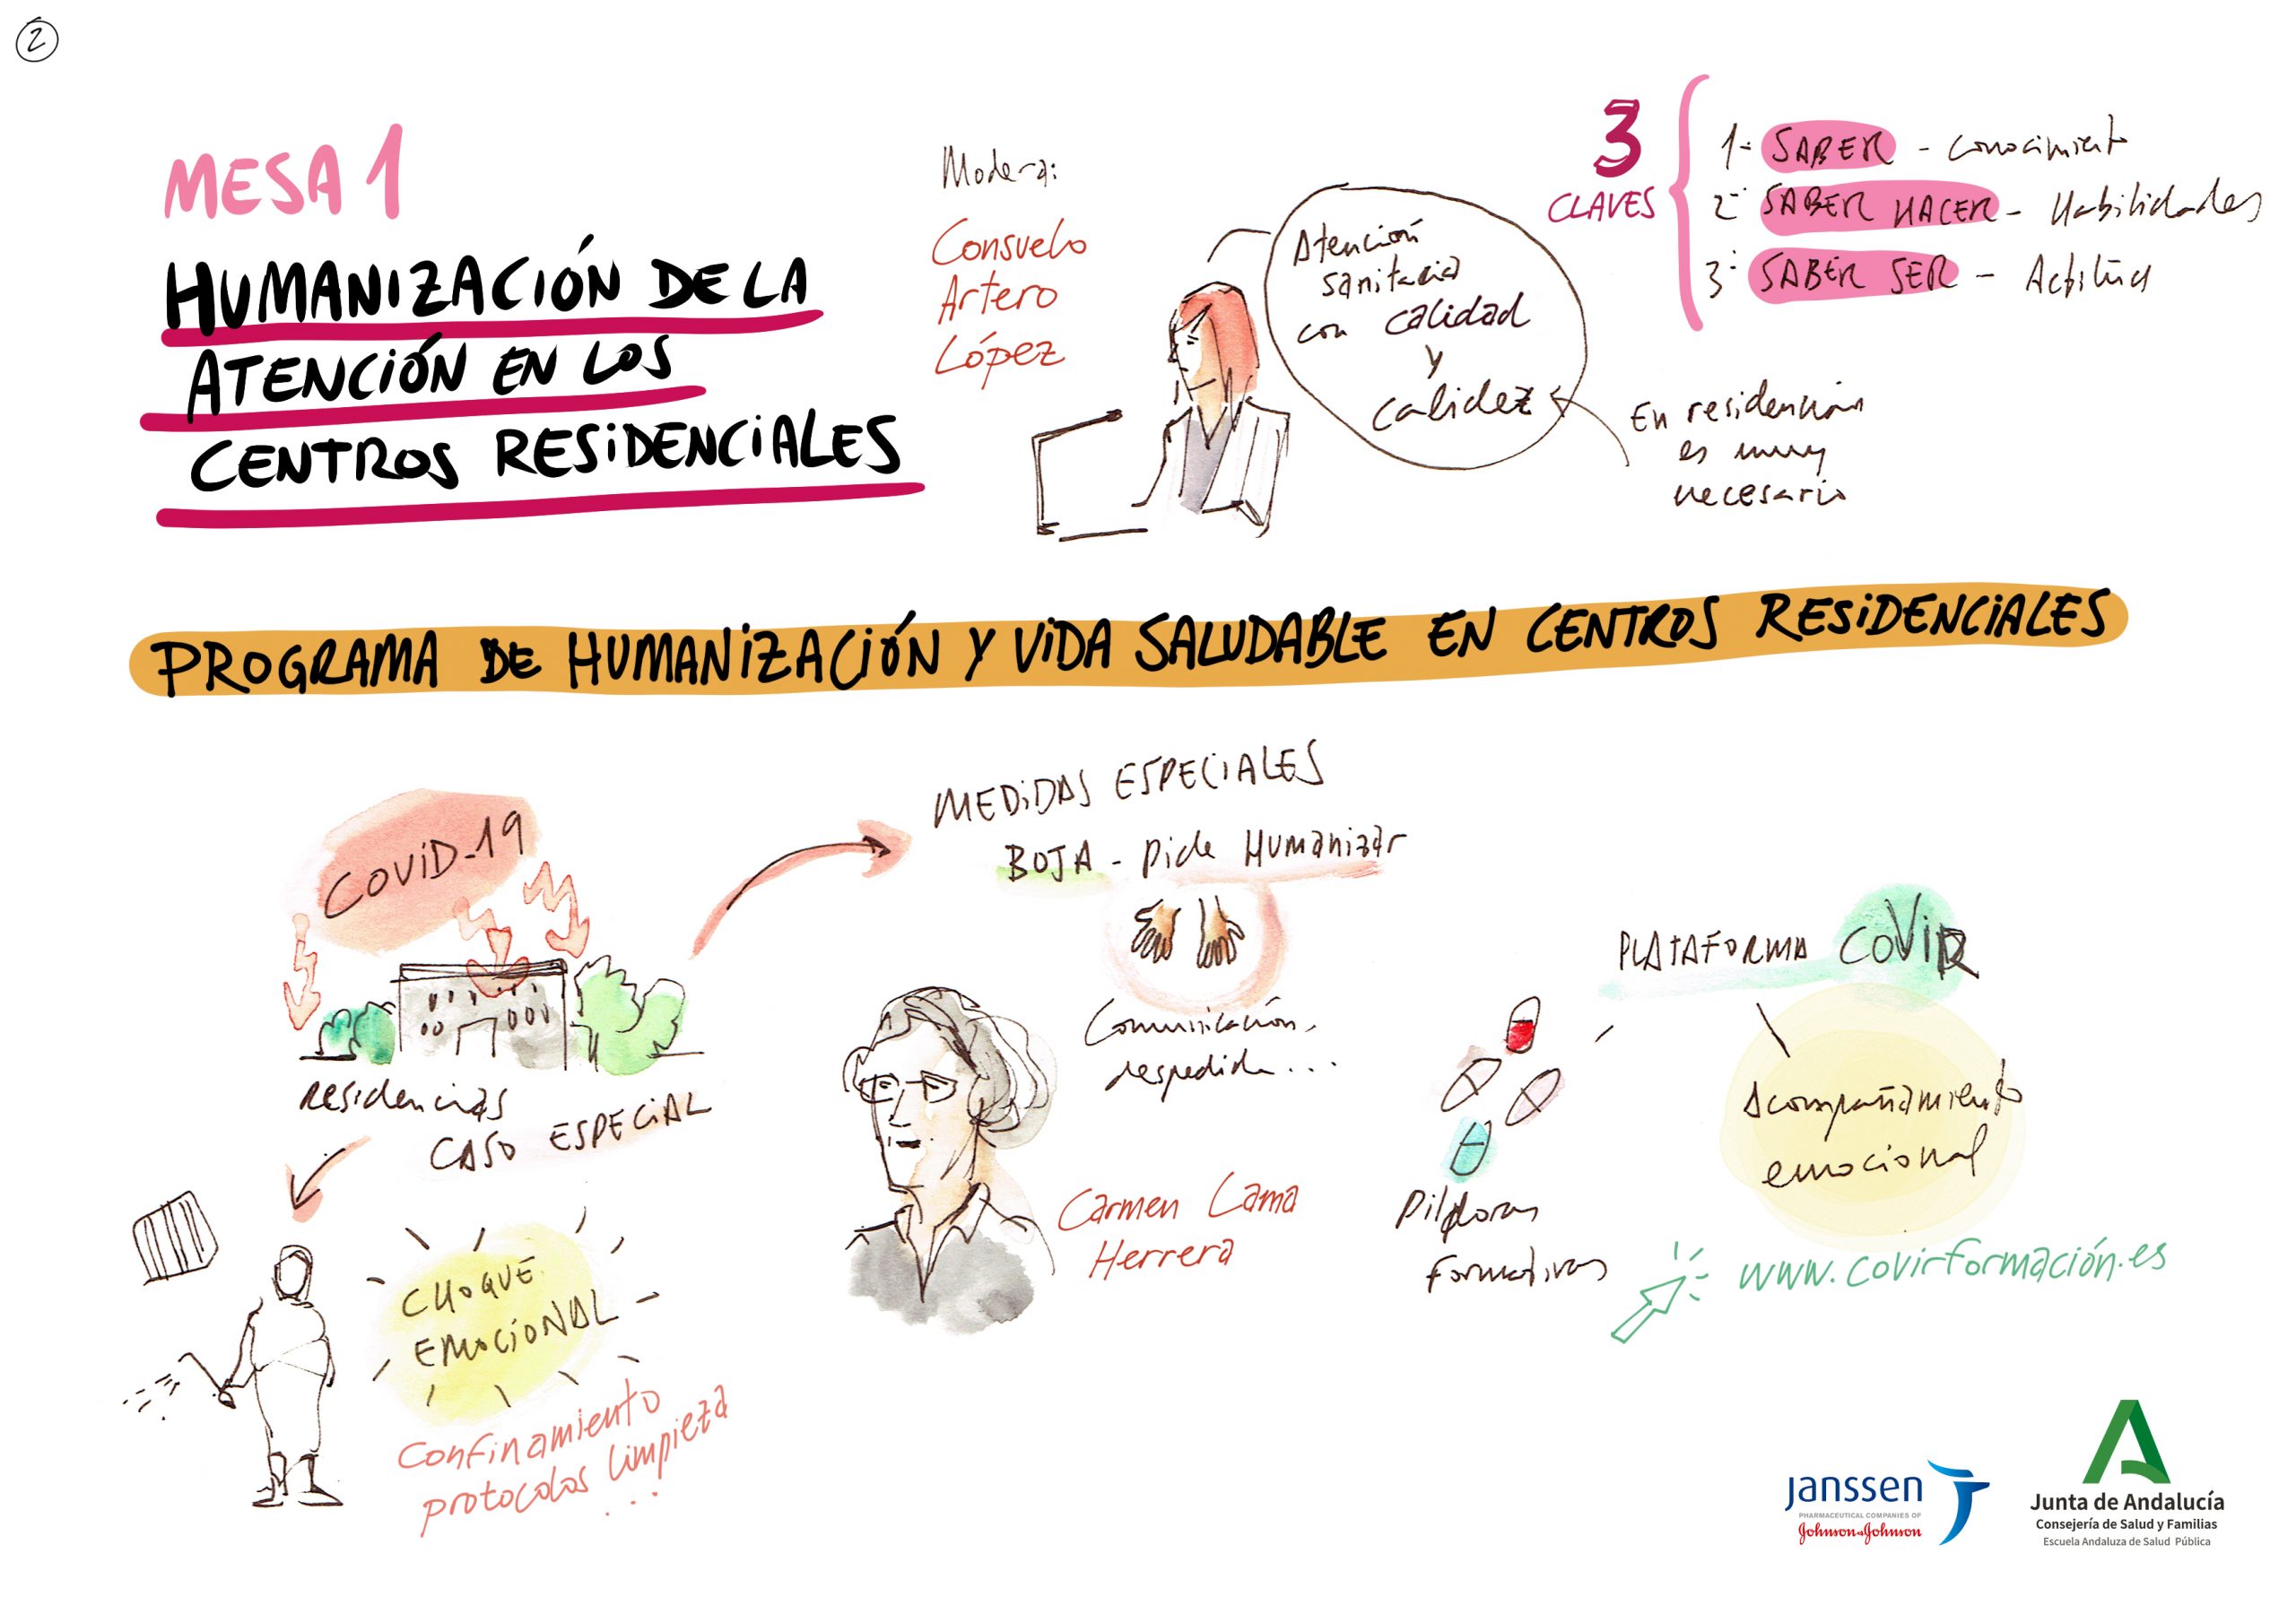 2
MESA 1
HUMANIZACIÓN DE LA
ATENCIÓN EN LOS
CENTROS RESIDENCIALES
Modera:
Consuelo
Artero
López
Atención
sanitaria
con calidad
y
calidez
En residencias
es muy
necesario
3
CLAVES
1- SABER - Conocimiento
2- SABER HACER - Habilidades
3- SABER SER - Actitud
PROGRAMA DE HUMANIZACIÓN Y VIDA SALUDABLE EN CENTROS RESIDENCIALES
COVID-19
Residencias
CASO ESPECIAL
CHOQUE
EMOCIONAL
Confinamiento
protocolos limpieza
...
MEDIDAS ESPECIALES
BOJA - Pide Humanizar
Comunicación,
despedida...
Carmen Lama
Herrera
PLATAFORMA COVIR
Píldoras
formativas
Acompañamiento
emocional
www.covirformación.es
janssen
PHARMACEUTICAL COMPANIES OF
Johnson & Johnson
Junta de Andalucía
Consejería de Salud y Familias
Escuela Andaluza de Salud Pública